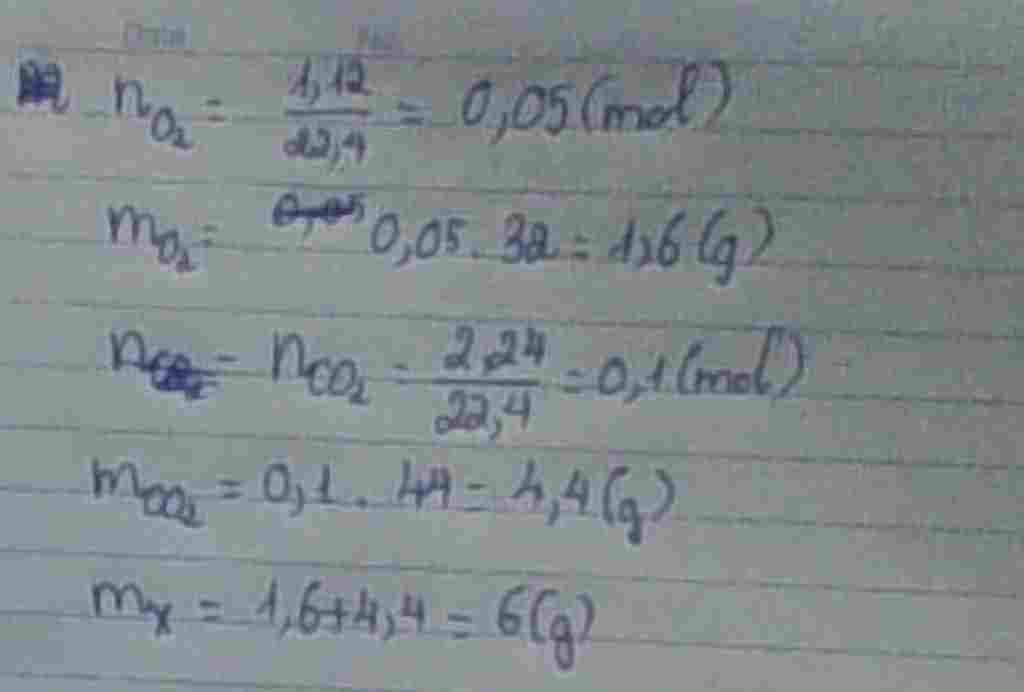 n_O₂ = 1,12/22,4 = 0,05 (mol)
m_O₂ = 0,05 . 32 = 1,6 (g)
n_CO₂ = 2,24/22,4 = 0,1 (mol)
m_CO₂ = 0,1 . 44 = 4,4 (g)
m_x = 1,6 + 4,4 = 6 (g)